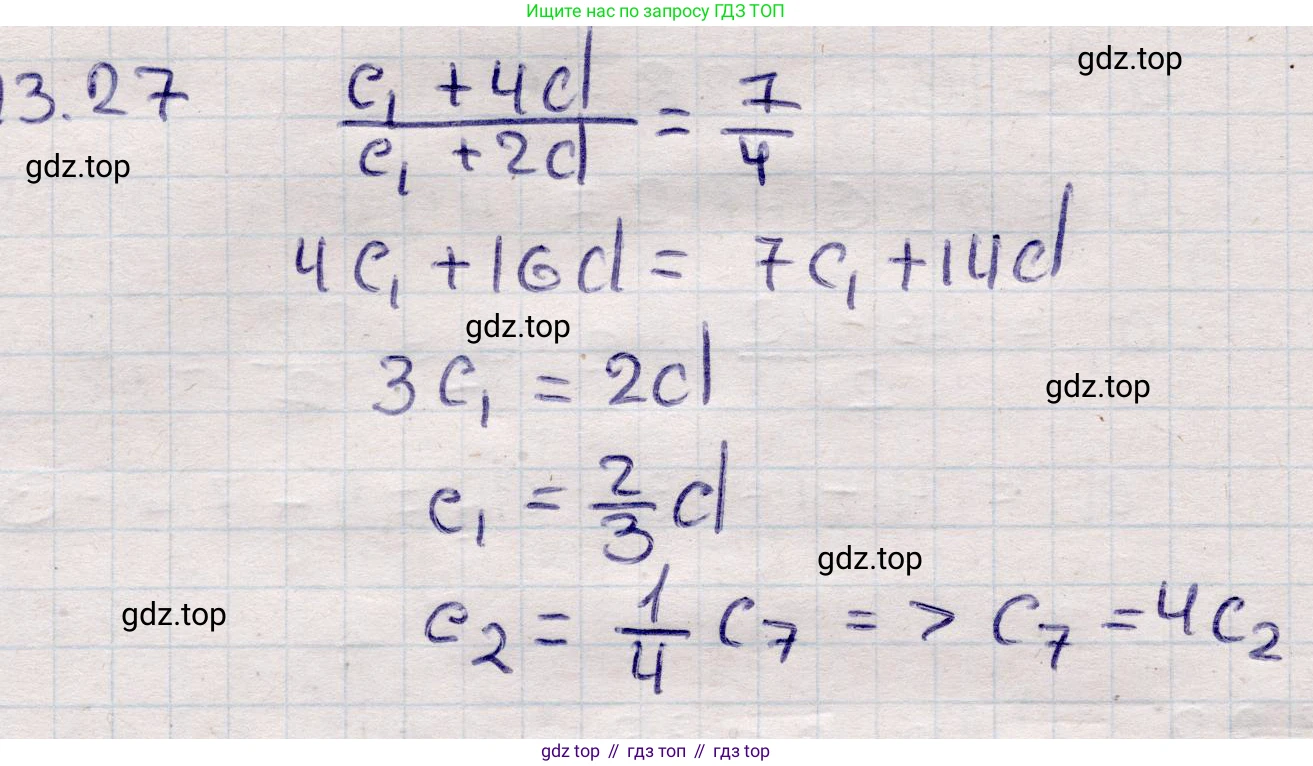 Ищите нас по запросу ГДЗ ТОП
gdz.top
13.27 (c₁ + 4d)/(c₁ + 2d) = 7/4
gdz.top
4c₁ + 16d = 7c₁ + 14d
gdz.top
3c₁ = 2d
gdz.top
c₁ = 2/3 d
gdz.top
gdz.top
c₂ = 1/4 c₇ => c₇ = 4c₂
gdz top // гдз топ // gdz top